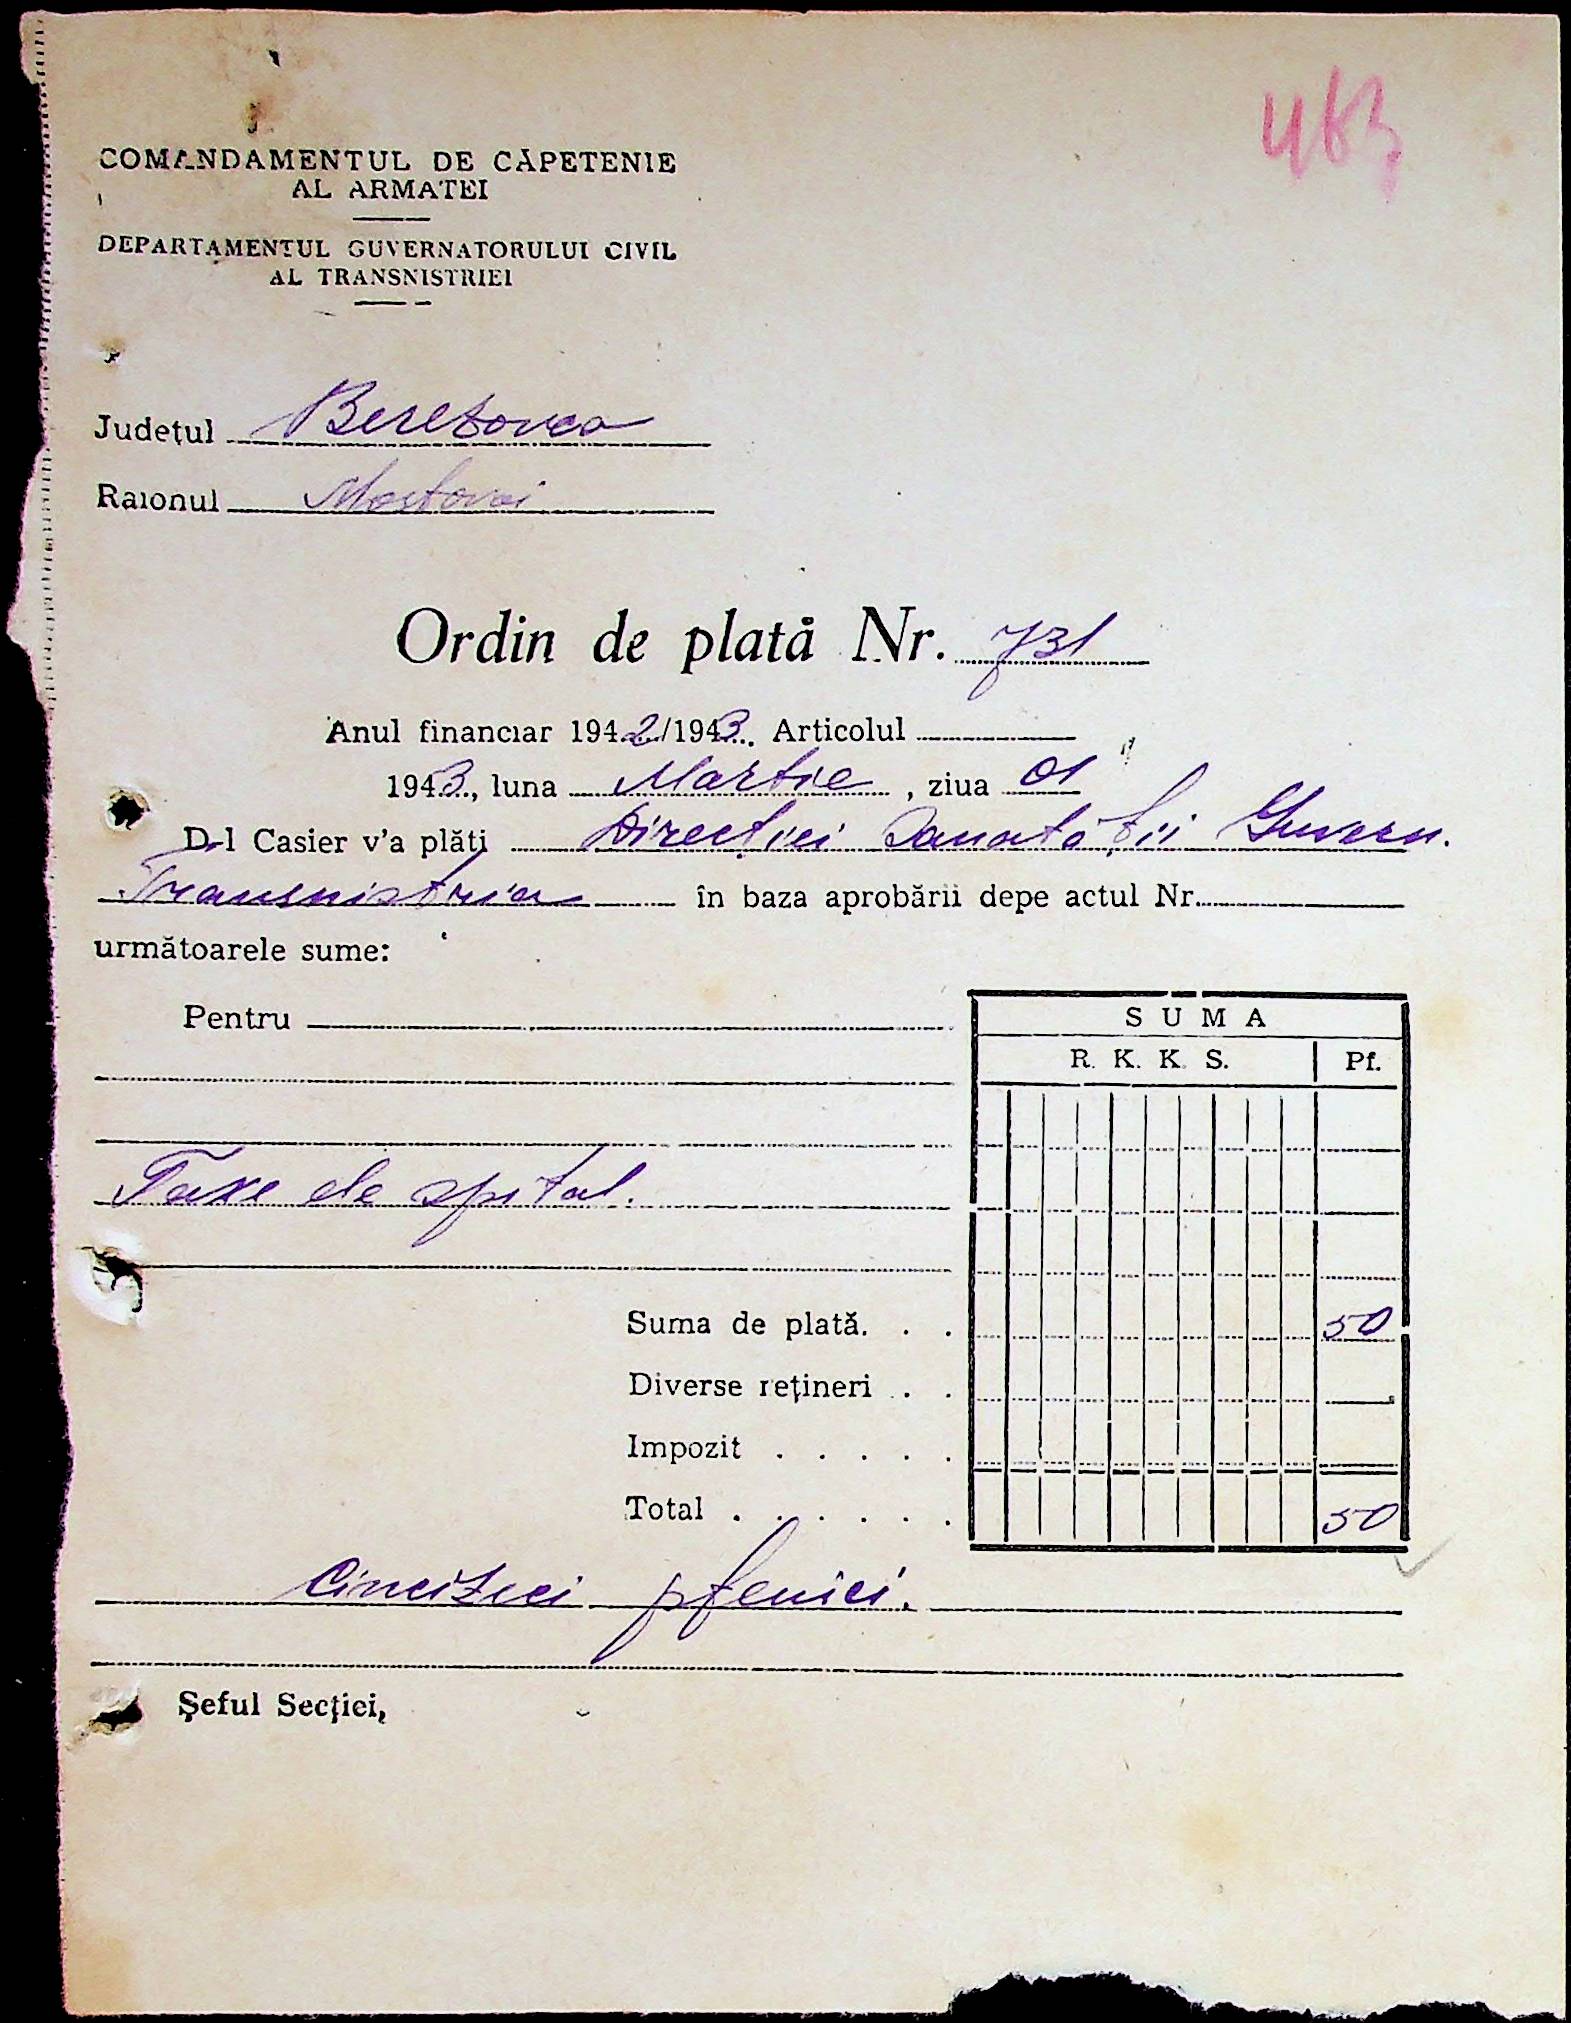 463
COMANDAMENTUL DE CĂPETENIE
AL ARMATEI
DEPARTAMENTUL GUVERNATORULUI CIVIL
AL TRANSNISTRIEI
Județul Berezovca
Raionul Mostovoi
Ordin de plată Nr. 731
Anul financiar 1942/1943. Articolul
1943., luna Martie, ziua 01
D-l Casier v'a plăti Direcției Sanatății Guvern.
Transnistria în baza aprobării depe actul Nr.
următoarele sume:
Pentru
SUMA
R. K. K. S. Pf.
Taxe de spital.
Suma de plată. . . 50
Diverse rețineri . .
Impozit . . . . .
Total . . . . . . 50
Cincizeci pfenici.
Șeful Secției,